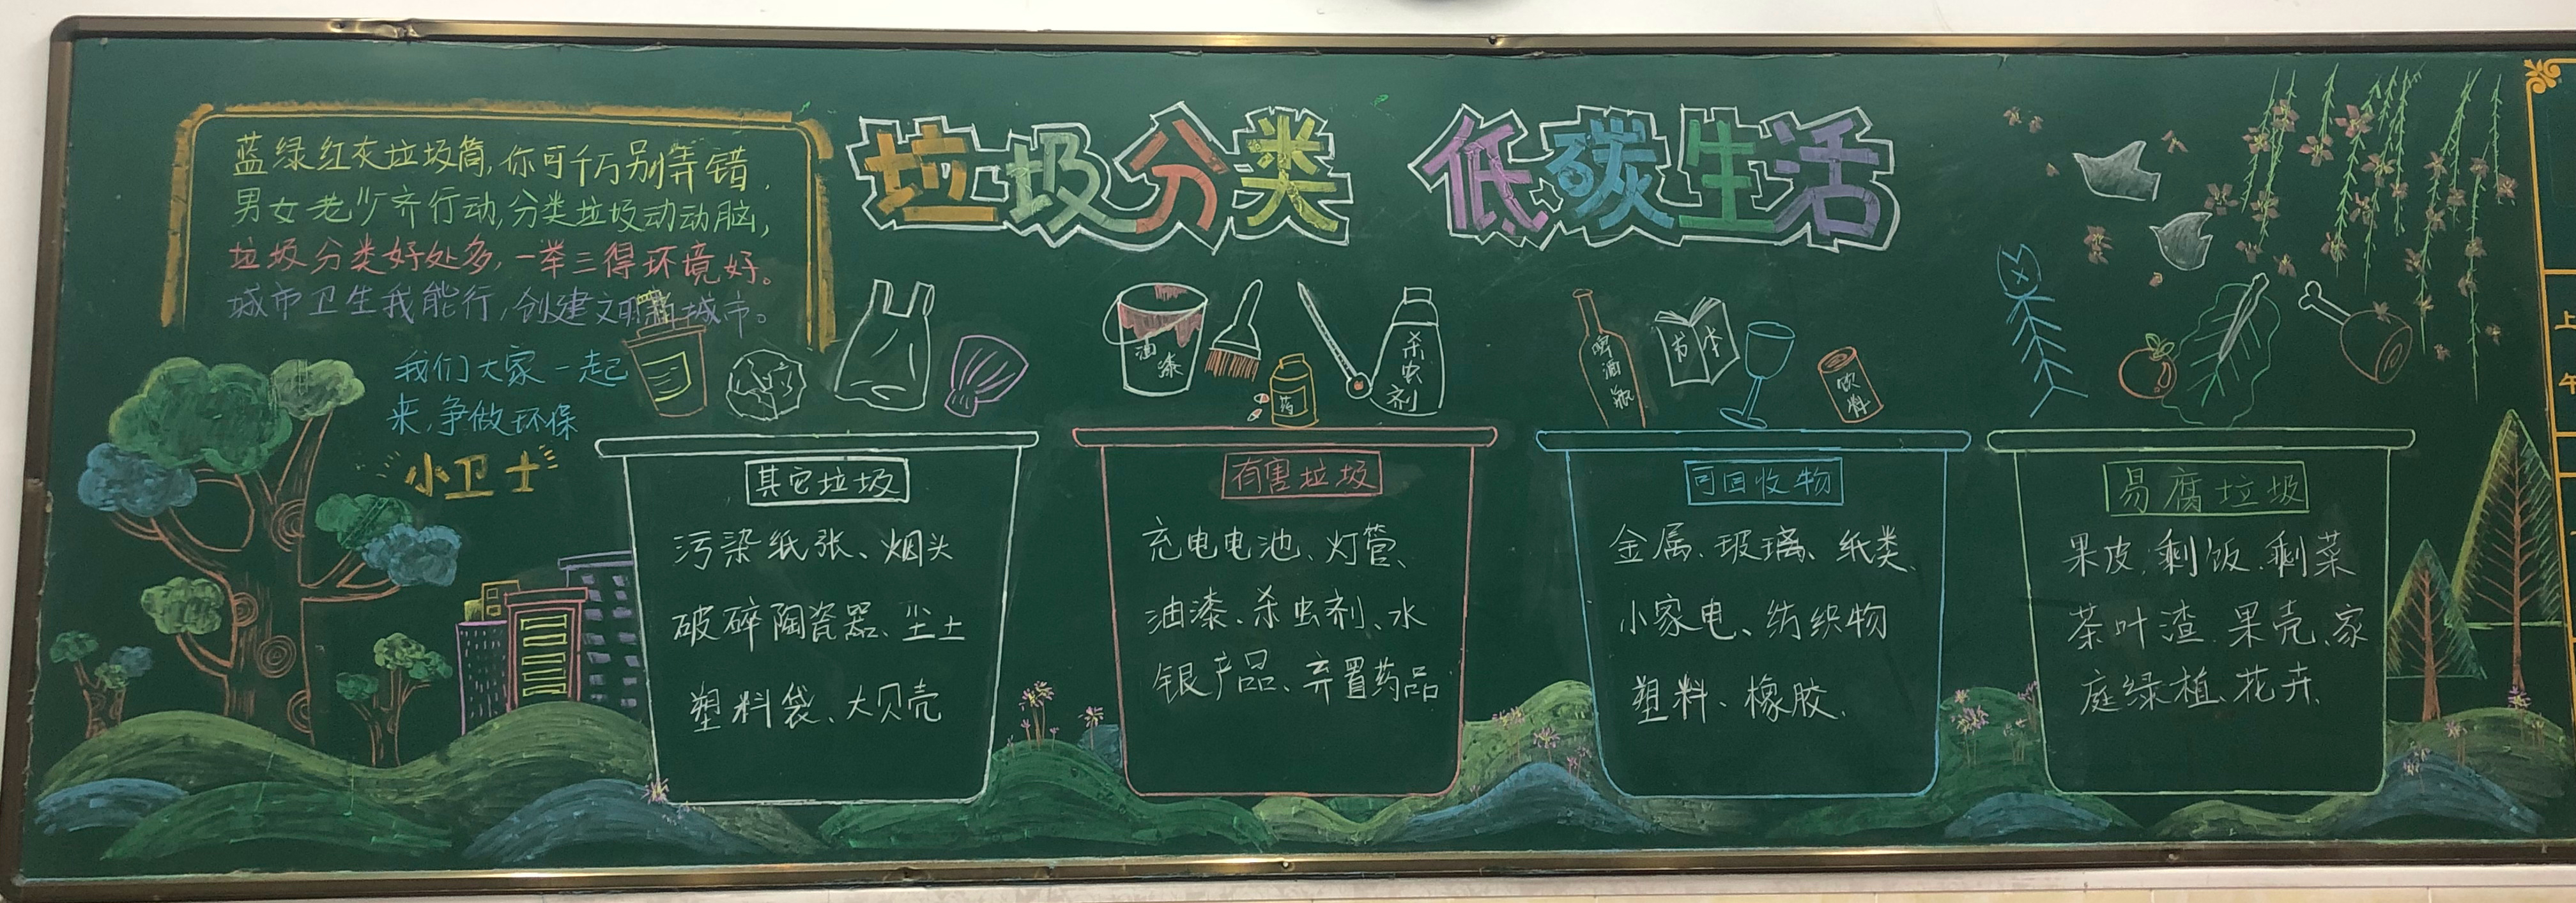 垃圾分类 低碳生活
蓝绿红灰垃圾筒,你可千万别弄错,
男女老少齐行动,分类垃圾动动脑,
垃圾分类好处多,一举三得环境好。
城市卫生我能行,创建文明新城市。
我们大家一起
来,争做环保
小卫士
油漆
药
杀虫剂
啤酒瓶
书本
饮料
其它垃圾
污染纸张、烟头
破碎陶瓷器、尘土
塑料袋、大贝壳
有害垃圾
充电电池、灯管、
油漆、杀虫剂、水
银产品、弃置药品
可回收物
金属、玻璃、纸类、
小家电、纺织物
塑料、橡胶、
易腐垃圾
果皮、剩饭、剩菜
茶叶渣、果壳、家
庭绿植、花卉、
上
午